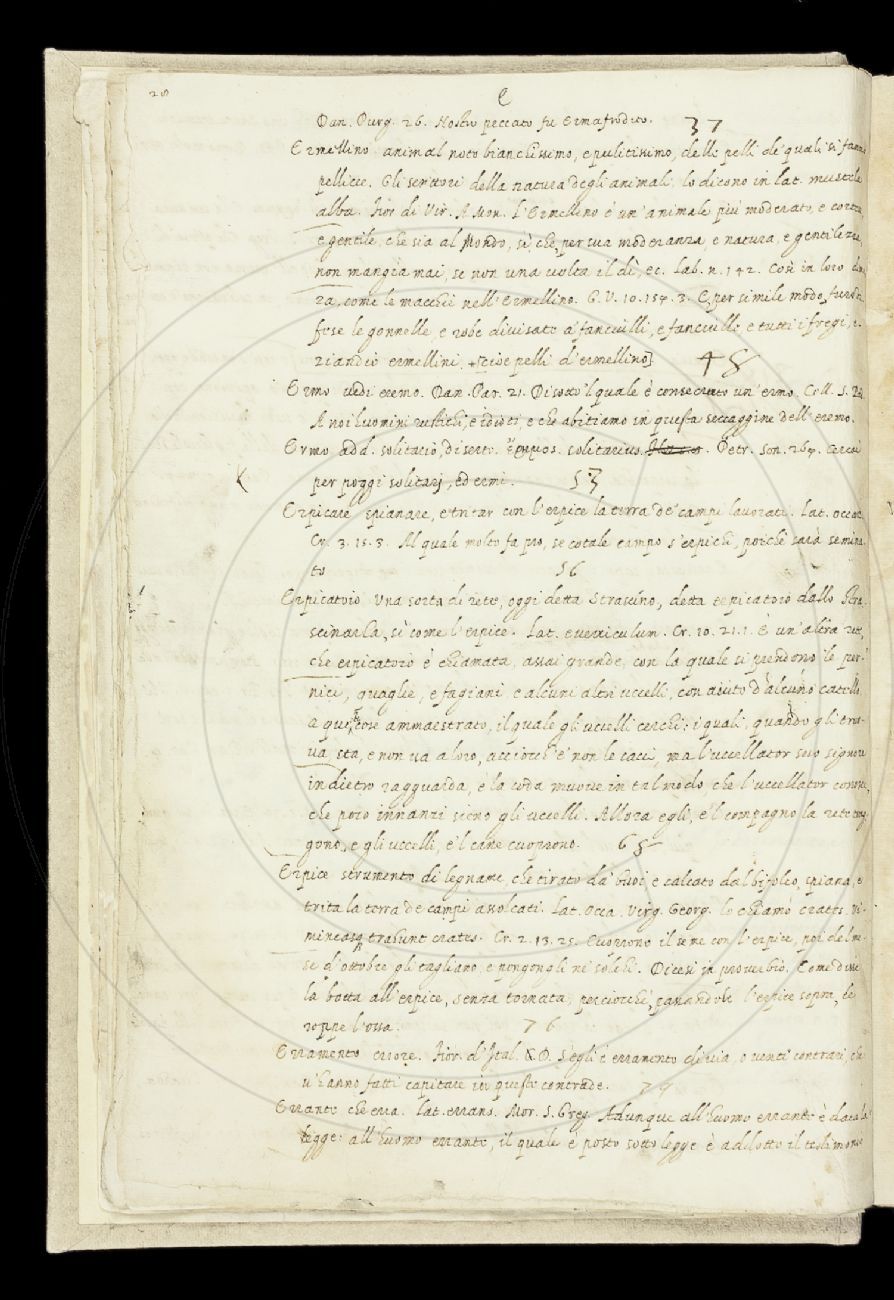 28
E
Dan. Purg. 26. Nostro peccato fu Ermafrodito. 37
Ermellino animal noto bianchissimo, e pulitissimo, delle pelli de' quali si fanno
pellicce. Gli scrittori della natura degli animali, lo dicono in lat. mustela
alba. Fior di Vir. A Mon. L'Ermellino è un'animale più moderato, e cortese,
e gentile, che sia al Mondo, sì, che, per sua moderanza, e natura, e gentilezza,
non mangia mai, se non una volta il dì, ec. Lab. n. 142. Così in loro
come le macchie nell'Ermellino. G. V. 10. 154. 3. E per simile modo,
fose le gonnelle, e robe divisate a' fanciulli, e fanciulle, e tutti i fregi, e
ziandio ermellini, + [cioè pelli d'ermellino] 48
Ermo vedi eremo. Dan. Par. 21. Disotto 'l quale è consecrato un'ermo. Coll. S. Pad.
A noi huomini rustichi, e idioti, e che abitiamo in questa seccaggine dell'eremo.
Ermo add. solitario, diserto. ἔρημος. solitarius. Petr. son. 264. Cercai
per poggi solitarj, ed ermi. 53
Erpicare spianare, e tritar con l'erpice la terra de' campi lavorati. Lat. occare
Cr. 3. 15. 3. Al quale molto fa pro, se cotale campo s'erpichi, poichè sarà semina-
to 56
Erpicatoio Una sorta di rete, oggi detta Strascino, detta erpicatoio dallo Stra-
scinarla, sì come l'erpice. Lat. everriculum. Cr. 10. 21. 1. È un'altra rete,
che erpicatoio è chiamata, assai grande, con la quale si prendono le per-
nici, quaglie, e fagiani, e alcuni altri uccelli, con aiuto d'alcuno catello
a queste cose ammaestrato, il quale gli uccelli cerchi: i quali, quando gli tro-
va, sta, e non va a loro, acciocch'e' non le cacci, ma l'uccellator suo signore
indietro ragguarda, e la coda muove in tal modo, che l'uccellator conosce,
che poco innanzi sieno gli uccelli. Allora egli, e 'l compagno la rete pon-
gono, e gli uccelli, e 'l cane cuoprono. 65
Erpice strumento di legname, che tirato da' buoi, e calcato dal bifolco, spiana, e
trita la terra de' campi assolcati. Lat. Occa. Virg. Georg. lo chiamò crates. Vi-
mineasq trahunt crates. Cr. 2. 13. 25. Cuoprono il seme con l'erpice, poi del me-
se d'ottobre gli tagliano, e pongongli ne' solchi. Dicesi in proverbio. Come disse
la botta all'erpice, senza tornata, perciocchè, passandole l'erpice sopra, le
roppe l'ossa. 76
Erramento errore. Fior. d'Ital. &. D. S'egli è erramento di via, o venti contrari, che
v'hanno fatti capitare in queste contrade. 79
Errante che erra. Lat. errans. Mor. S. Greg. Adunque all'huomo errante è data la
legge: all'huomo errante, il quale è posto sotto legge è addotto il testimonio